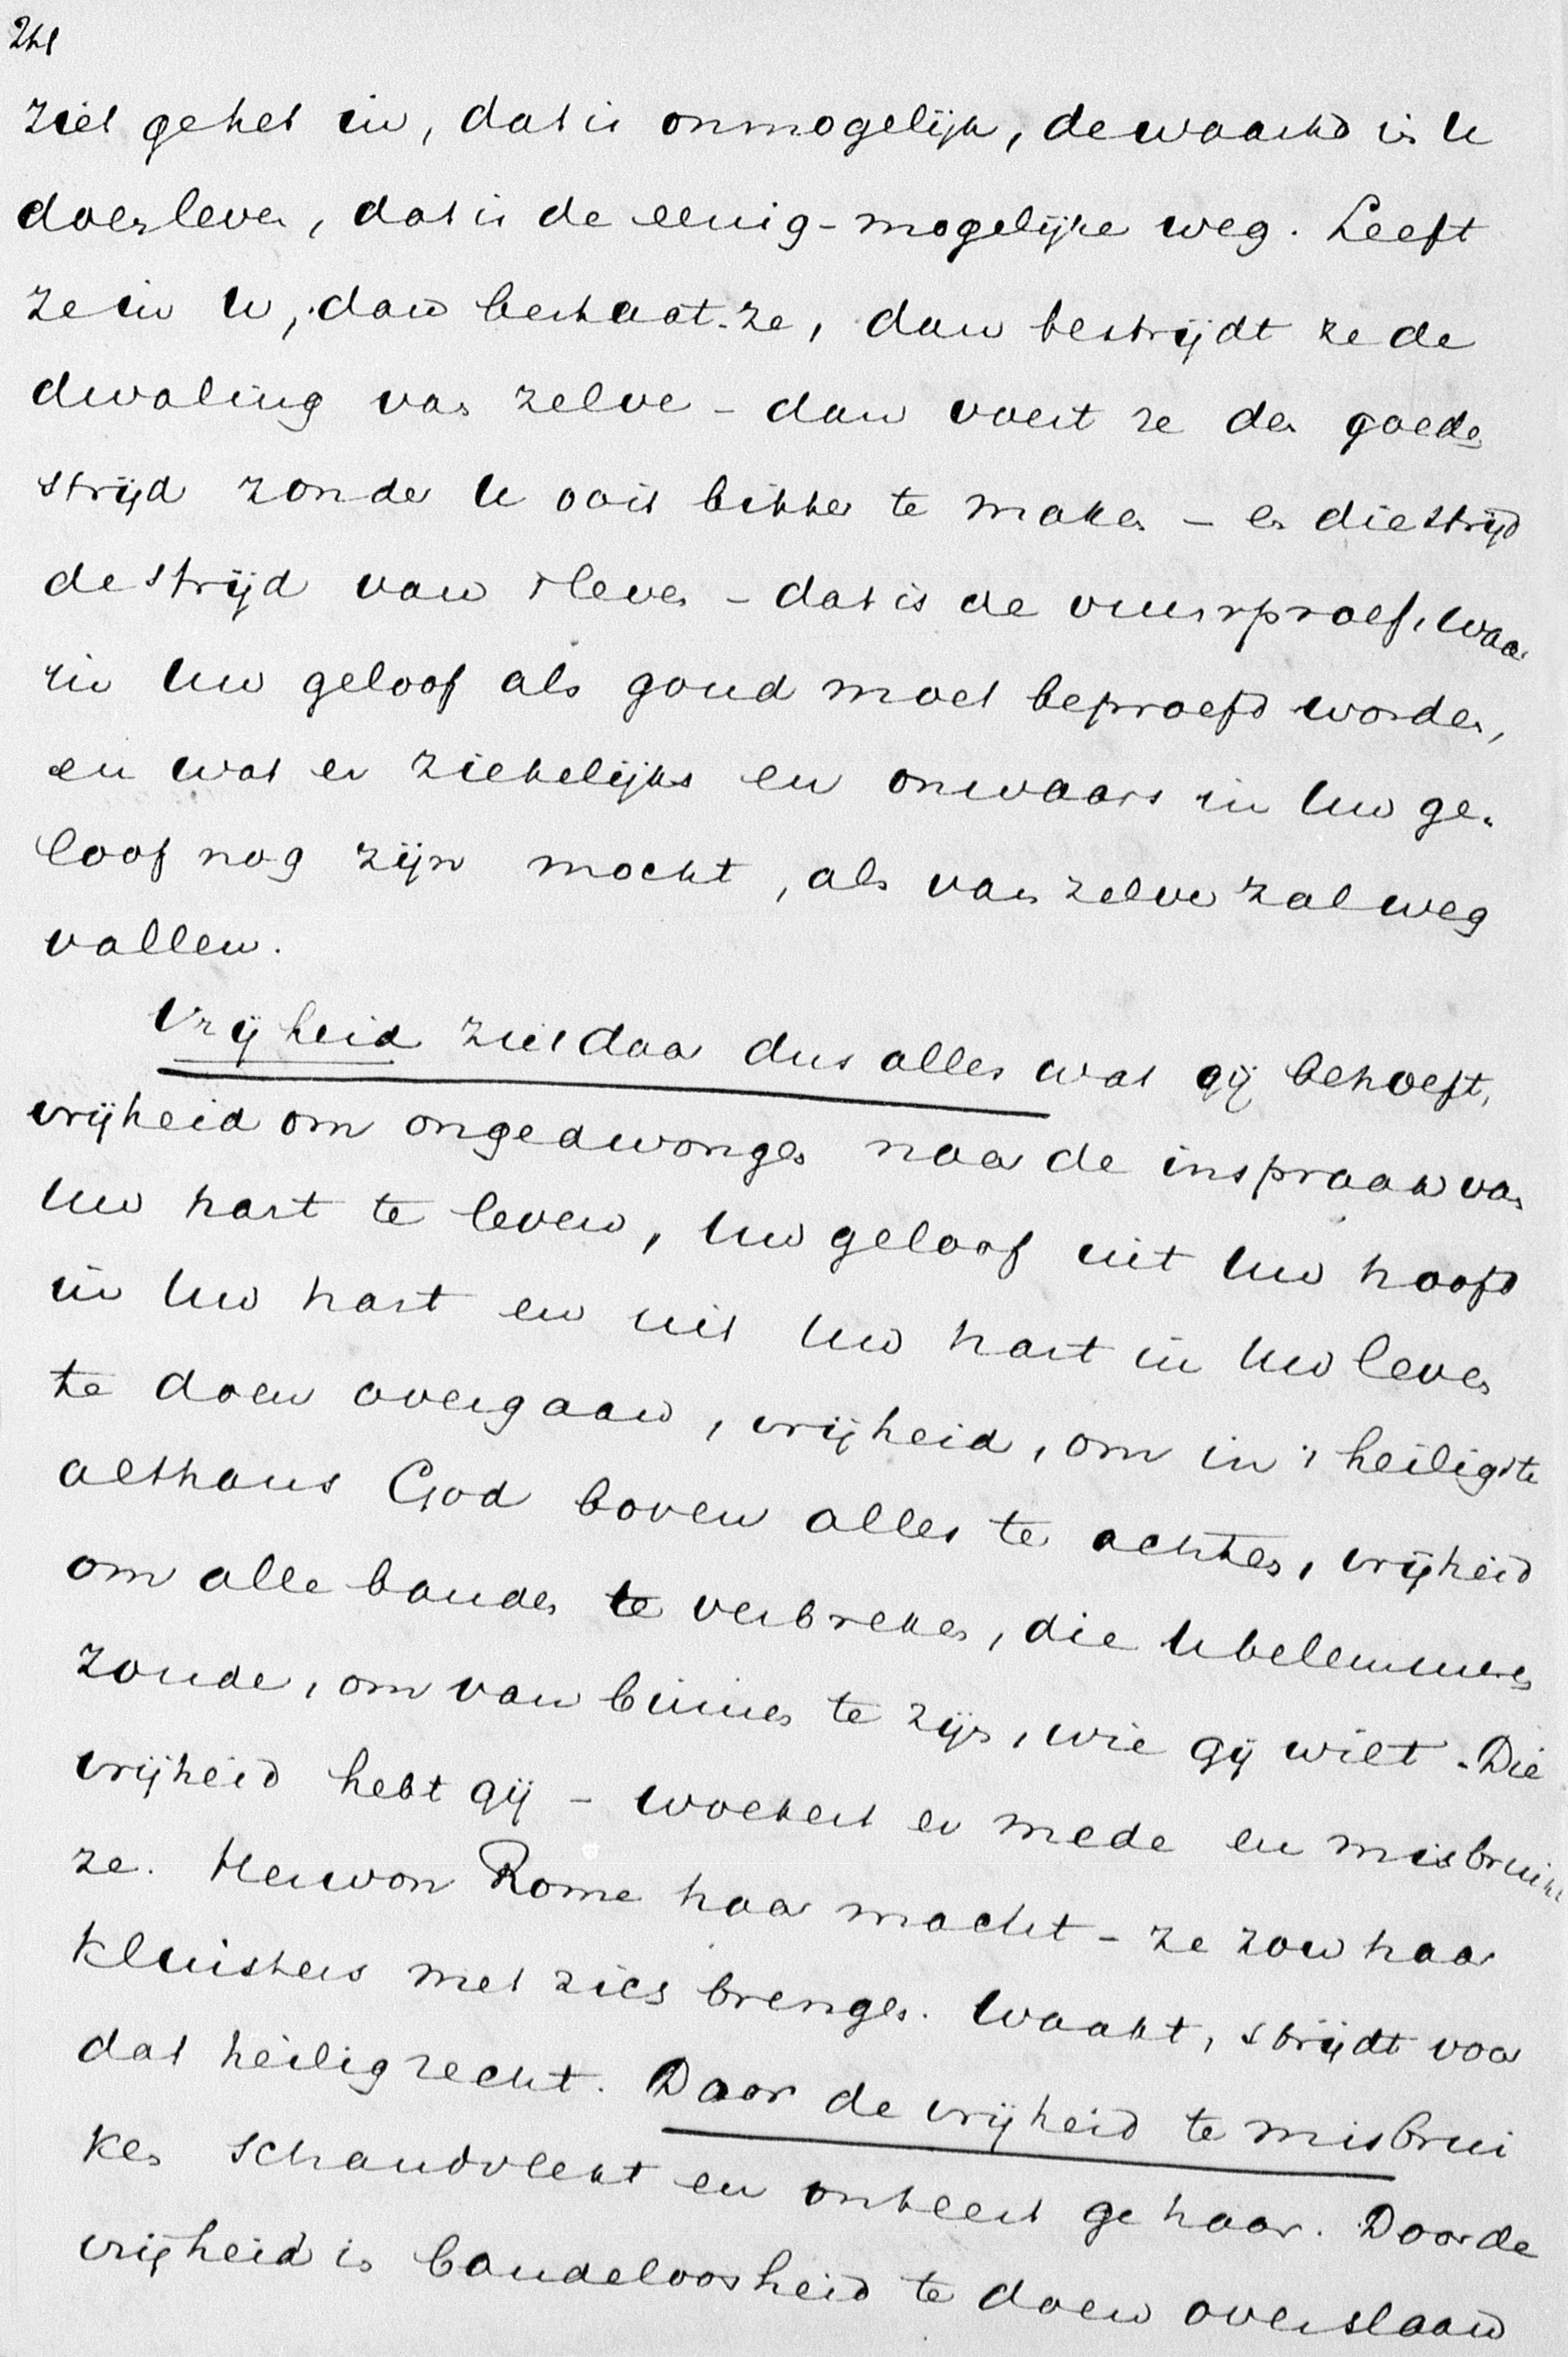 ziet gehet in, dat is onmogelijk, de waarhd in U
doen leven, dat is de eenig-mogelijke weg. Leeft
ze in U, dan bestaat ze, dan bestrijdt ze de
dwaling van zelve - dan voert ze den goede
strijd zonder U ooit bitter te maken - en die strijd
de strijd van 't leven - dat is de vuurproef, waar
in Uw geloof als goud moet beproefd worden,
en wat er ziekelijks en onwaars in Uw ge-
loof nog zijn mocht, als van zelve zal weg
vallen.
Vrijheid ziet daar dus alles wat gij behoeft,
vrijheid om ongedwongen naar de inspraak van
Uw hart te leven, Uw geloof uit Uw hoofd
in Uw hart en uit Uw hart in Uw leven
te doen overgaan, vrijheid, om in 't heiligste
althans God boven alles te achten, vrijheid
om alle banden te verbreken, die U belemmeren
zonde, om van binnen te zijn, wie gij wilt. Die
vrijheid hebt gij - woekert er mede en misbruikt
ze. Herwon Rome haar macht - ze zou haar
kluisters met zich brengen. Waakt, strijdt voor
dat heilig recht. Door de vrijheid te misbrui
ken schandvlekt en onteert ge haar. Door de
vrijheid in bandeloosheid te doen overslaan